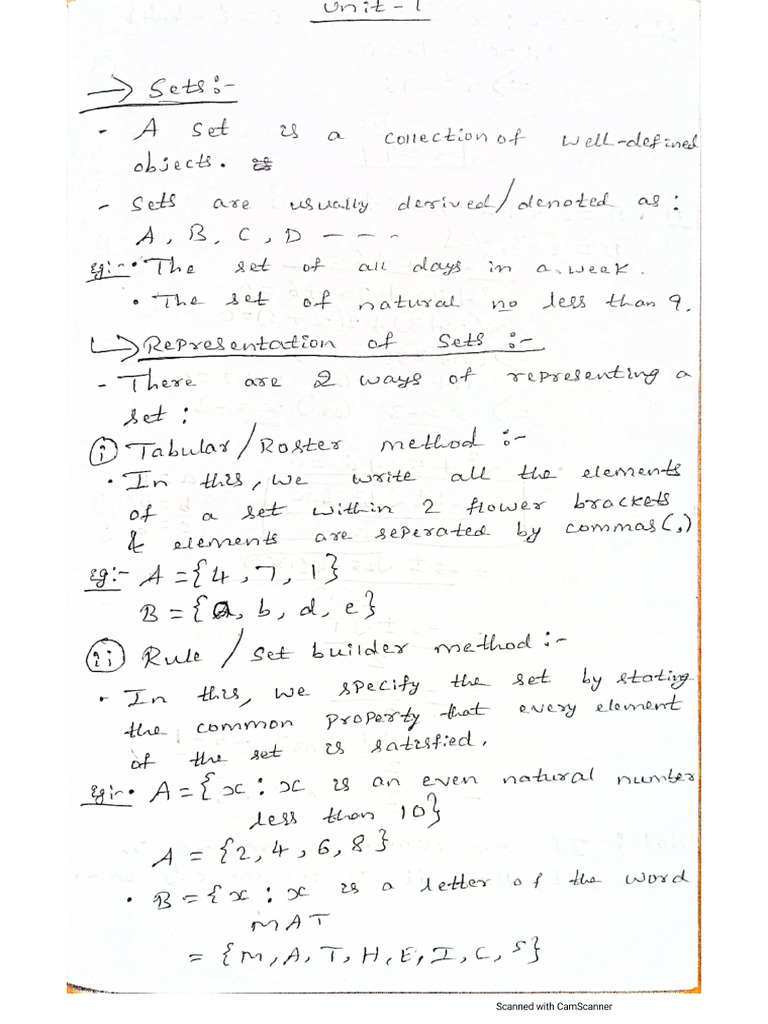 Unit - 1
→ Sets :-
- A set is a collection of well-defined
objects.
- Sets are usually derived/denoted as :
A, B, C, D - - -
Eg:- • The set of all days in a week.
• The set of natural no less than 9.
↳ Representation of Sets :-
- There are 2 ways of representing a
set :
(i) Tabular/Roster method :-
• In this, we write all the elements
of a set within 2 flower brackets
& elements are seperated by commas(,)
Eg:- A = {4, 7, 1}
B = {a, b, d, e}
(ii) Rule / Set builder method :-
• In this, we specify the set by stating
the common property that every element
of the set is satisfied.
Eg:- • A = {x : x is an even natural number
less than 10}
A = {2, 4, 6, 8}
• B = {x : x is a letter of the word
MAT
= {M, A, T, H, E, I, C, S}
Scanned with CamScanner